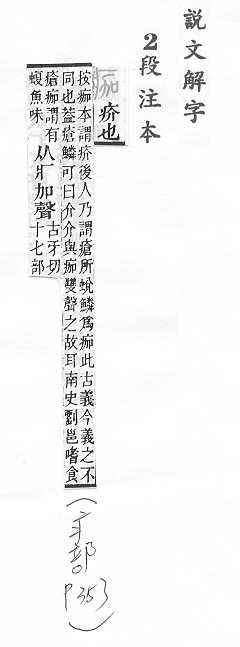 說文解字
2段注本
痂 疥也
按痂本謂疥後人乃謂瘡所蛻鱗爲痂此古義今義之不
同也葢瘡鱗可曰介介與痂雙聲之故耳南史劉邕嗜食
瘡痂謂有
鰒魚味
从疒加聲
古牙切
十七部
(疒部
P353)